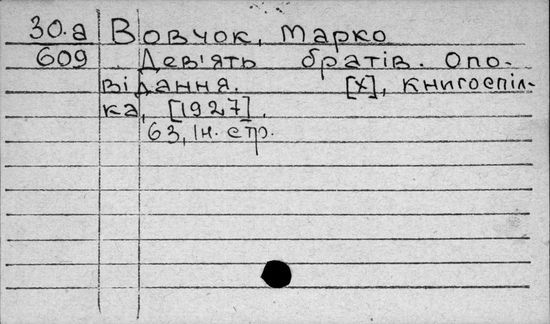 30.а Вовчок, Марко
609 Дев'ять братів. Опо-
відання. [Х], Книгоспіл-
ка, [1927].
63, Ін. стр.